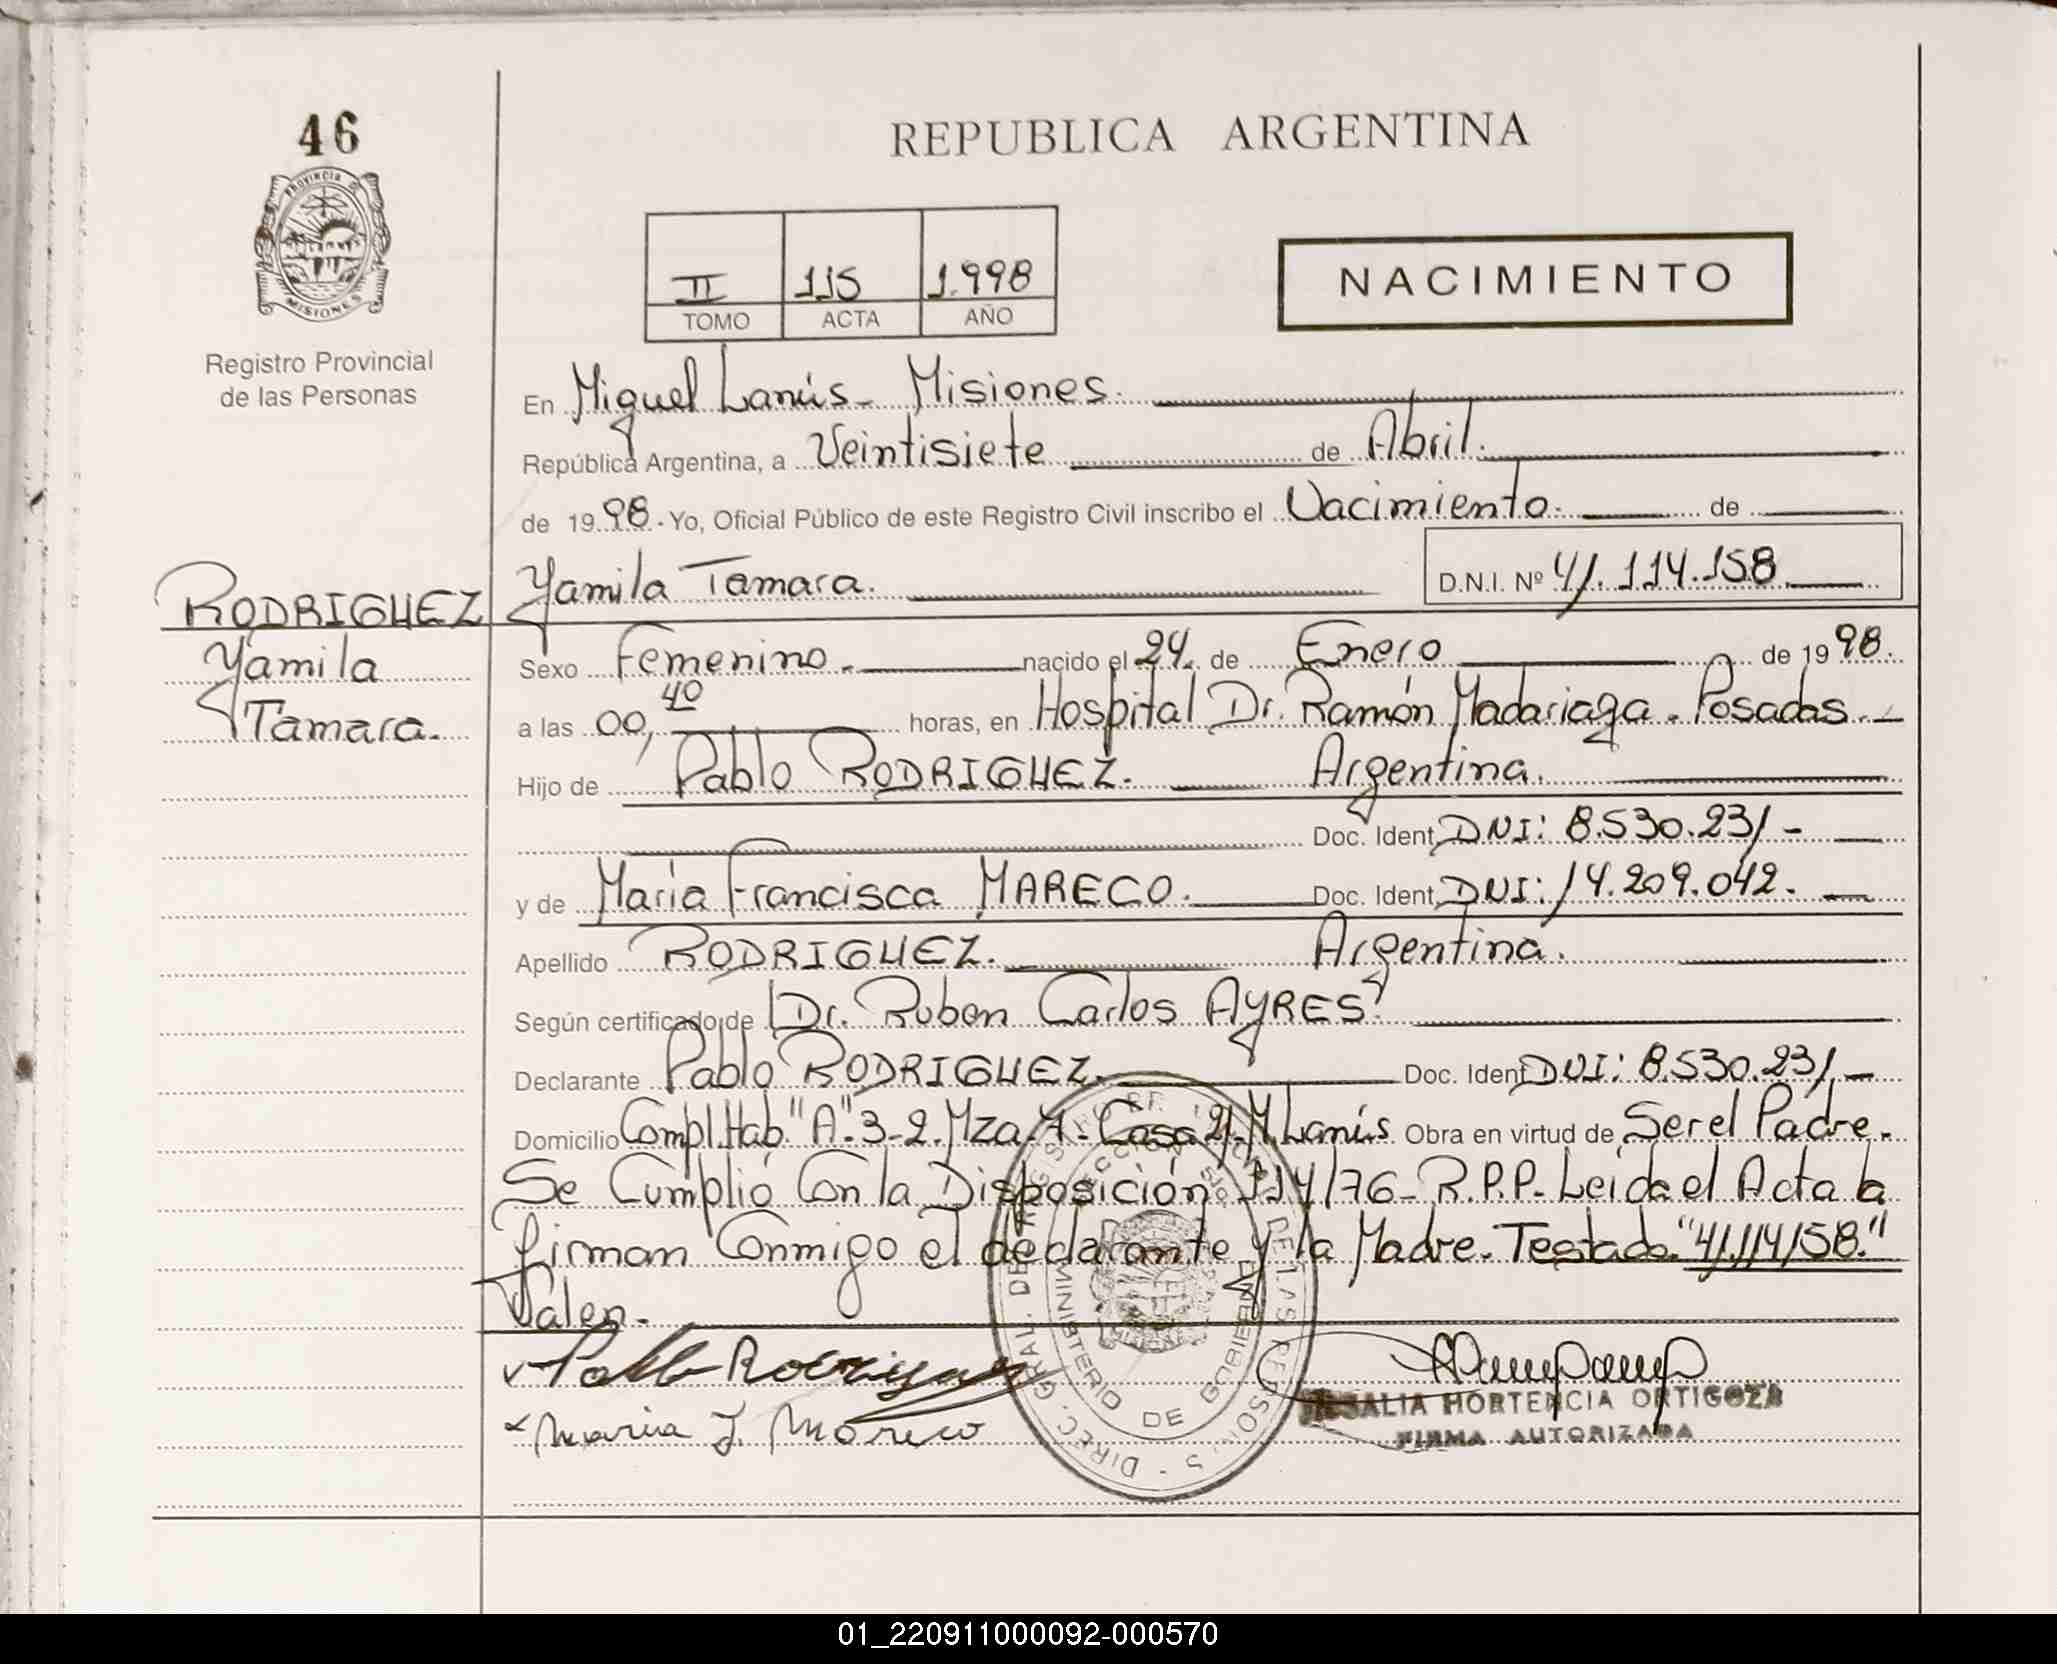 46
PROVINCIA DE
MISIONES
Registro Provincial
de las Personas
REPUBLICA ARGENTINA
II 115 1.998
TOMO ACTA AÑO
NACIMIENTO
En Miguel Lanús - Misiones.
República Argentina, a Veintisiete de Abril.
de 1998. Yo, Oficial Público de este Registro Civil inscribo el Nacimiento. de
Yamila Tamara. D.N.I. Nº 41.114.158
RODRIGUEZ
Yamila
Tamara.
Sexo Femenino. nacido el 24. de Enero de 1998.
a las 00,40 horas, en Hospital Dr. Ramón Madariaga. Posadas.
Hijo de Pablo RODRIGUEZ. Argentina.
Doc. Ident. DNI: 8.530.231 -
y de María Francisca MARECO. Doc. Ident. DNI: 14.209.042.
Apellido RODRIGUEZ. Argentina.
Según certificado de Dr. Ruben Carlos AYRES.
Declarante Pablo RODRIGUEZ. Doc. Ident. DNI: 8.530.231, -
Domicilio Compl. Hab. "A". 3-2. Mza. 7. Casa 21. M. Lanús Obra en virtud de Ser el Padre.
Se Cumplió Con la Disposición 114/76 - R.P.P. - Leída el Acta la
firman Conmigo el declarante y la Madre. Testado. "41.114.158."
Valen.
Pablo Rodriguez
Maria F. Moreco
DIREC. GRAL. DEL REGISTRO PROVINCIAL DE LAS PERSONAS
MINISTERIO DE GOBIERNO
ROSALIA HORTENCIA ORTIGOZA
FIRMA AUTORIZADA
01_220911000092-000570